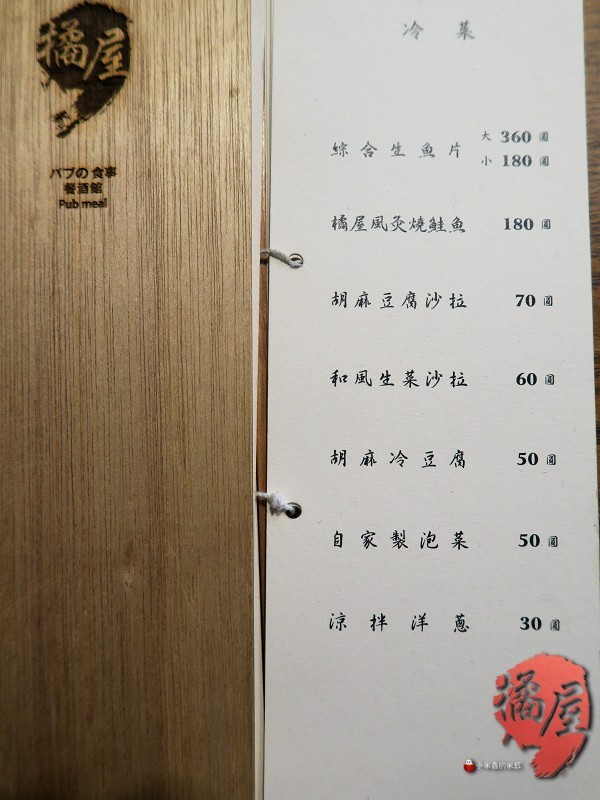 橘屋
パブの 食事
餐酒館
Pub meal
冷菜
綜合生魚片 大 360 圓
小 180 圓
橘屋風炙燒鮭魚 180 圓
胡麻豆腐沙拉 70 圓
和風生菜沙拉 60 圓
胡麻冷豆腐 50 圓
自家製泡菜 50 圓
涼拌洋蔥 30 圓
橘屋
小米香的米惑